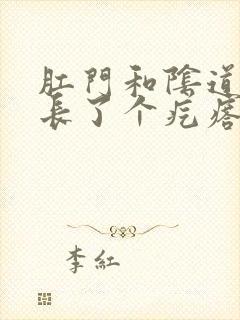 肛門和陰道
長了个疙瘩
李紅